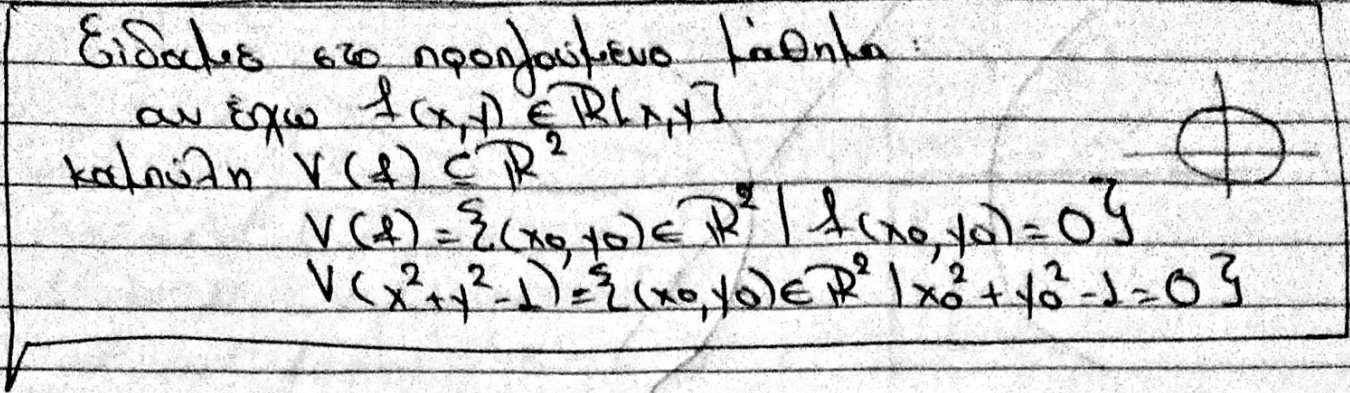 Είδαμε στο προηγούμενο μάθημα:
αν έχω f(x,y) ∈ ℝ[x,y]
καμπύλη V(f) ⊆ ℝ²
V(f) = {(x₀,y₀) ∈ ℝ² | f(x₀,y₀) = 0}
V(x²+y²-1) = {(x₀,y₀) ∈ ℝ² | x₀² + y₀² - 1 = 0}